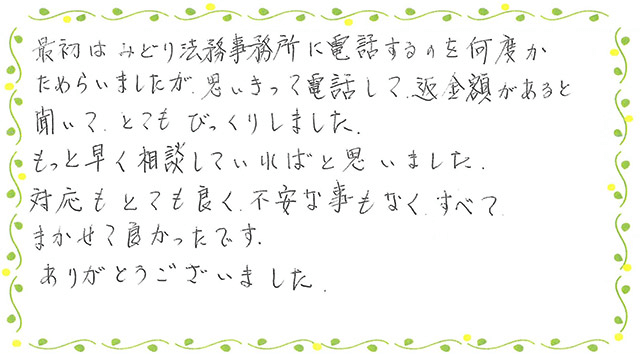 最初はみどり法務事務所に電話するのを何度か
ためらいましたが、思いきって電話して、返金額があると
聞いて、とてもびっくりしました。
もっと早く相談していればと思いました。
対応もとても良く、不安な事もなく、すべて
まかせて良かったです。
ありがとうございました。